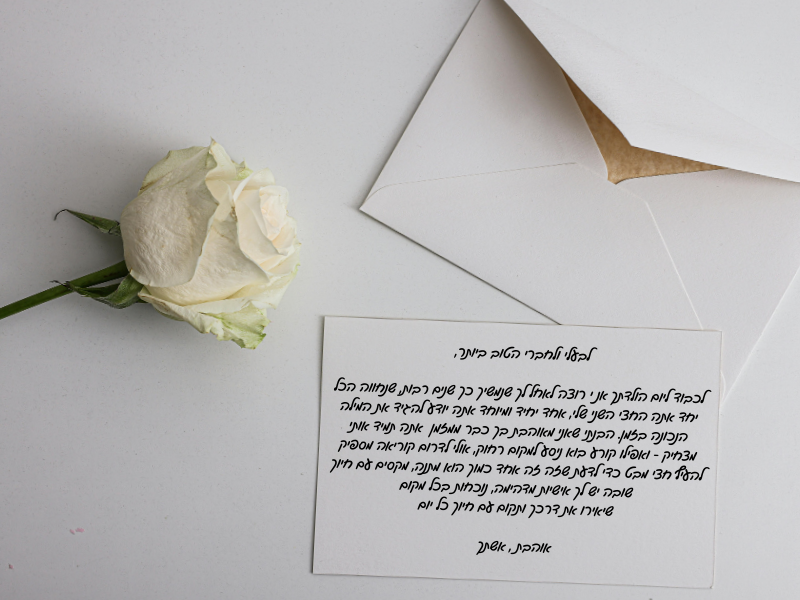 לבעלי ולחברי הטוב ביותר,
לכבוד ליום הולדתך אני רוצה לאחל לך שנמשיך כך שנים רבות, שנחווה הכל
יחד אתה החצי השני שלי, אחד יחיד ומיוחד אתה יודע להגיד את המילה
הנכונה בזמן. הבנתי שאני מאוהבת בך כבר ממזמן אתה תמיד אותי
מצחיק - ואפילו קורע בוא ניסע למקום רחוק, אולי לדרום קוריאה מספיק
להעיף חצי מבט כדי לדעת שזה זה אחד כמוך הוא מתנה, מקסים עם חיוך
שובה יש לך אישיות מדהימה, נוכחות בכל מקום
שיאירו את דרכך ותקום עם חיוך כל יום
אוהבת, אשתך